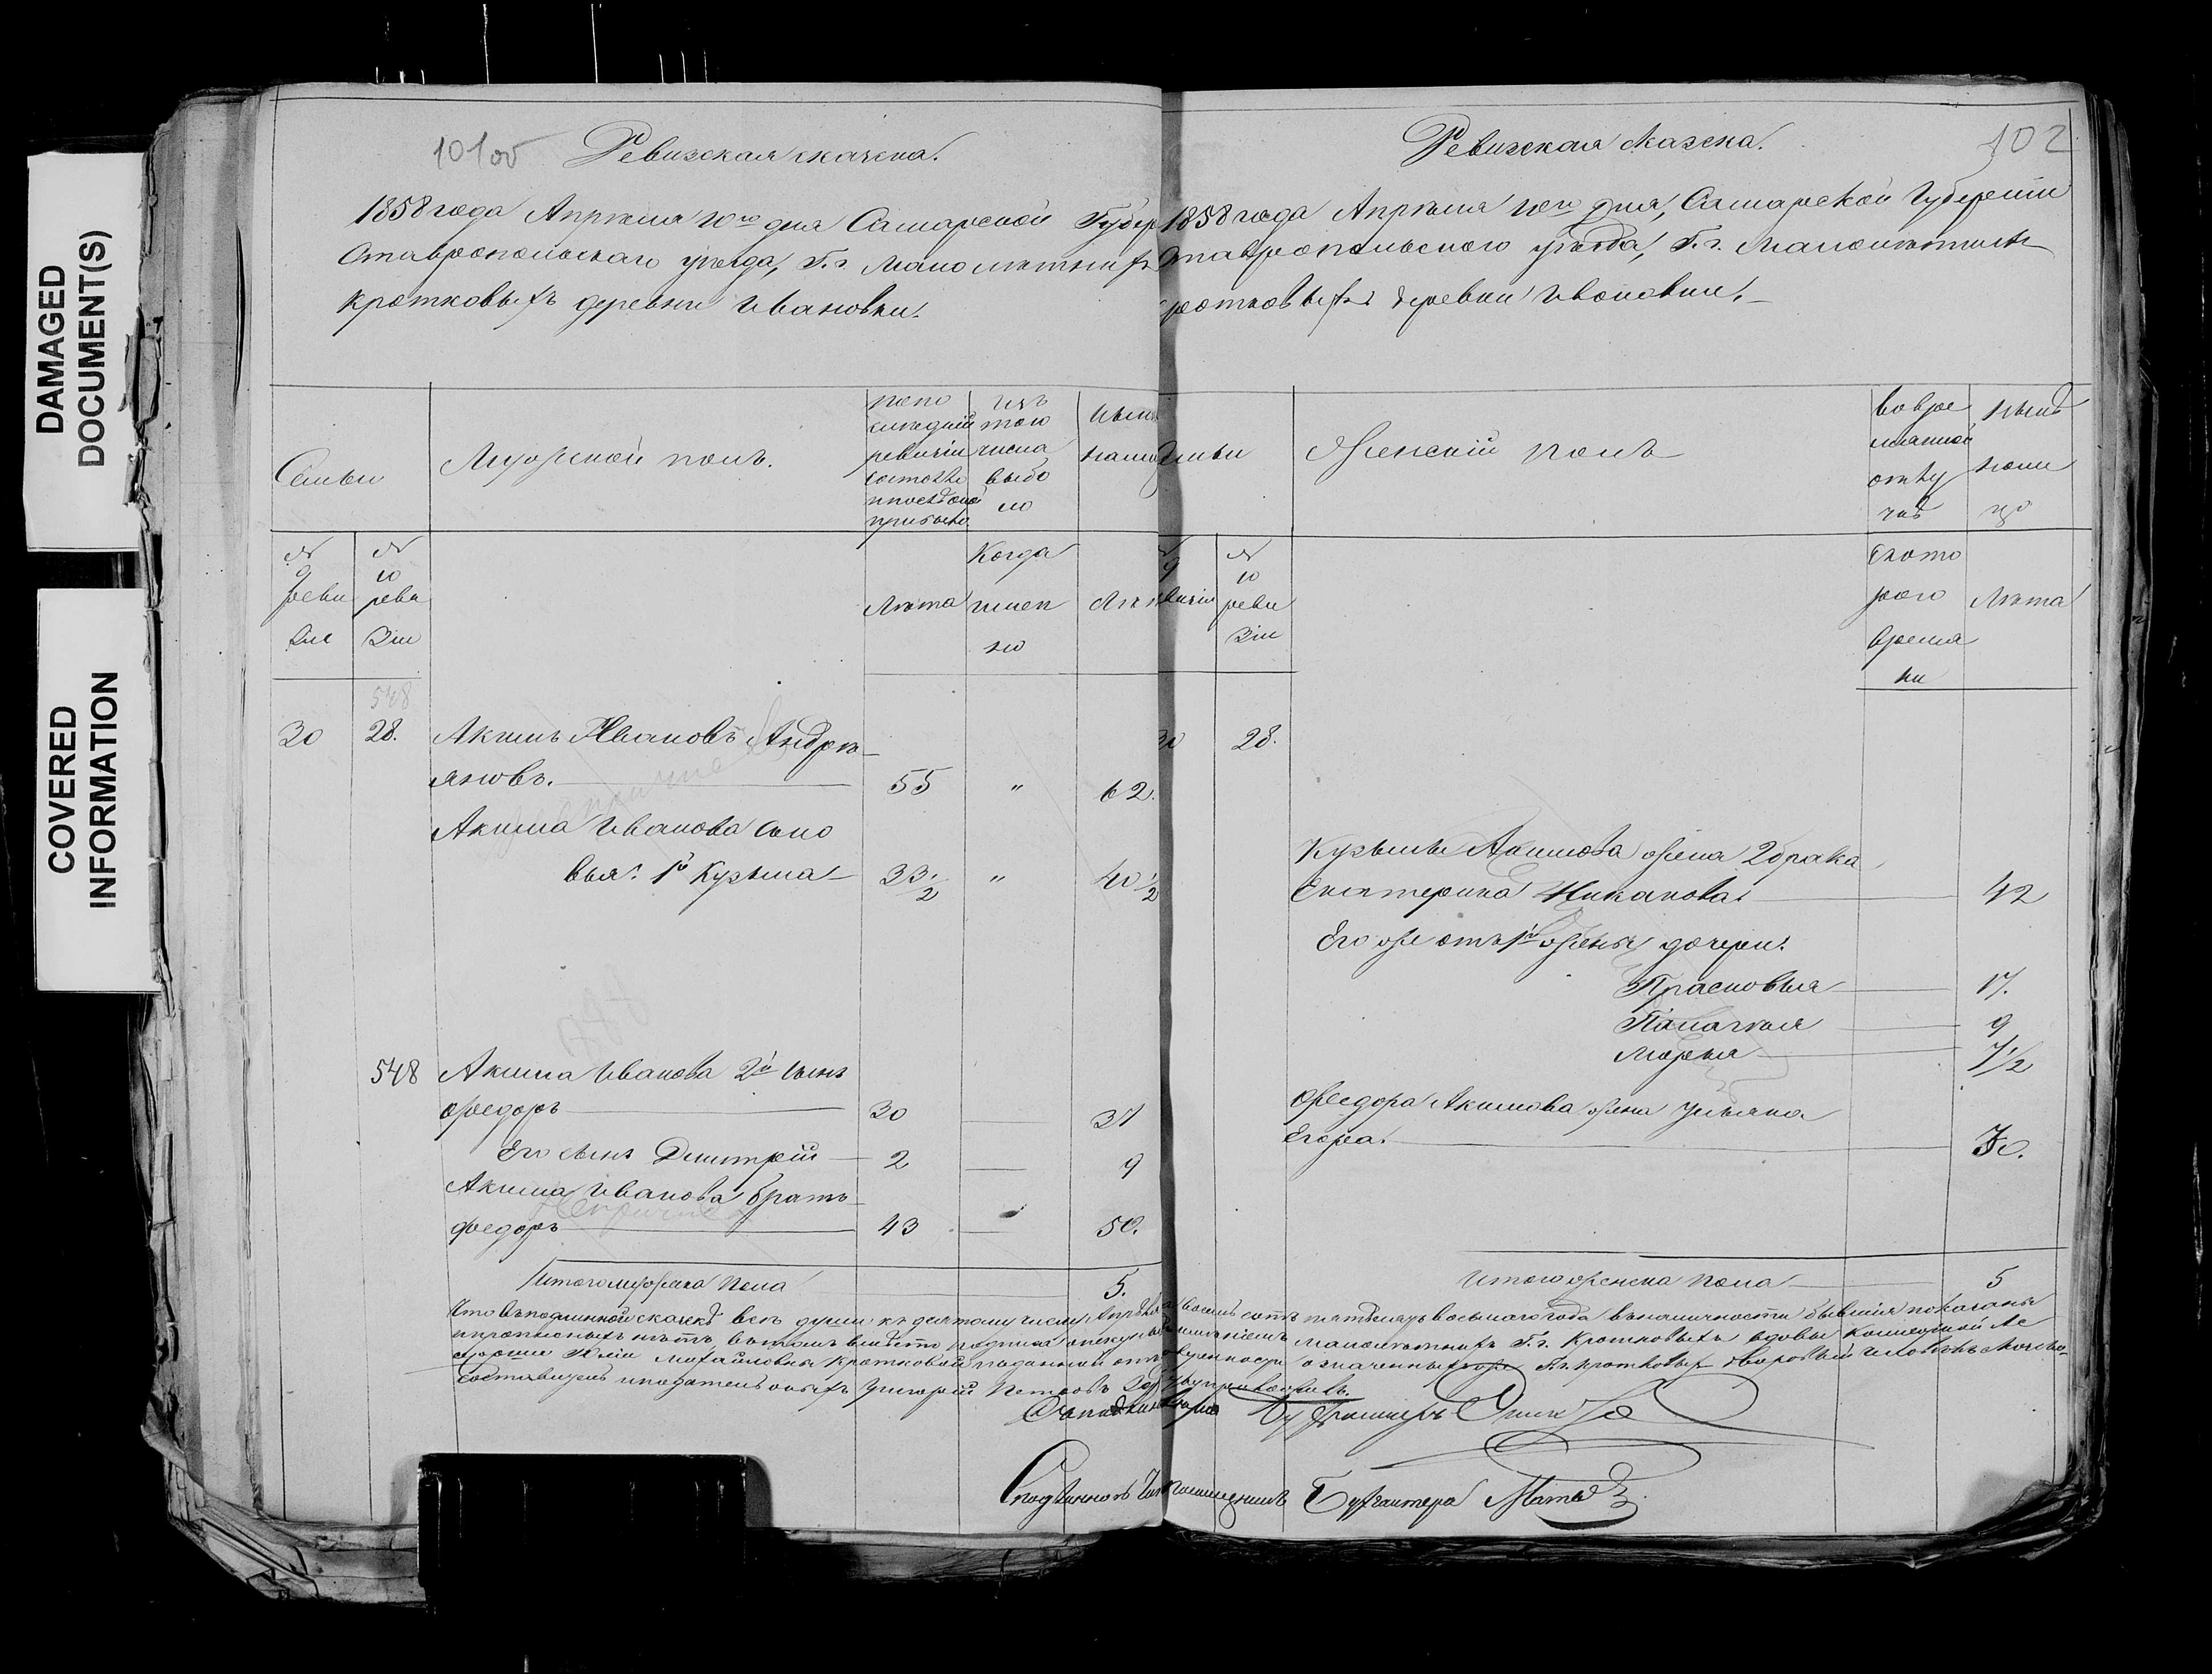 DAMAGED
DOCUMENT(S)
COVERED
INFORMATION
101об
Ревизская сказка.
1858 года Апреля 10го дня Самарской Губер
Ставропольскаго уезда, Г.г. Малолетних
Кротковыхъ деревни Ивановки.
Семьи
Мужеской полъ.
по по
следней
ревизіи
состояло
и после оной
прибыло
изъ
того
числа
выбы
ло
Ныне
на лицо
№
9
реви
зіи
№
10
реви
зіи
Лета
Когда
имен
но
Лета
548
30
28.
Акимъ Ивановъ Андре
яновъ.
55
"
62.
Акима Иванова сыно
вья: 1й Кузьма
33 1/2
"
40 1/2
548
Акима Иванова 2й сынъ
Федоръ
30
37
Его сынъ Димитрій
2
9
Акима Иванова братъ
Федоръ
43
50.
Итого мужеска пола
5.
102
Ревизская сказка.
1858 года Апреля 10го дня, Самарской Губерніи
Ставропольскаго уезда, Г.г. Малолетнихъ
Кротковыхъ деревни Ивановки.
Семьи
Женскій полъ
во вре
менной
отлу
чке
Ныне
на ли
цо
9
ревизіи
№
10
реви
зіи
Съ кото
раго
време
ни
Лета
30
28.
Кузьмы Акимова жена 2 брака
Екатерина
42
Его же отъ 1й жены дочери:
Прасковья
17.
Палагея
9
Марья
7 1/2
Федора Акимова жена Ульяна
Егорва.
Итого женска пола
5
Что въ подлинной сказке все души къ десятому числу Апреля восемь сотъ пятьдесятъ восьмаго года въ наличности бывшія показаны
и прописныхъ нетъ, въ томъ малолетнихъ Г.г. Кротковыхъ вдовы
Юліи Михайловны Кротковой
Составитель и податель оныхъ Григорій Петровъ
Бухгалтеръ
Съ подлиннымъ
Бухгалтера